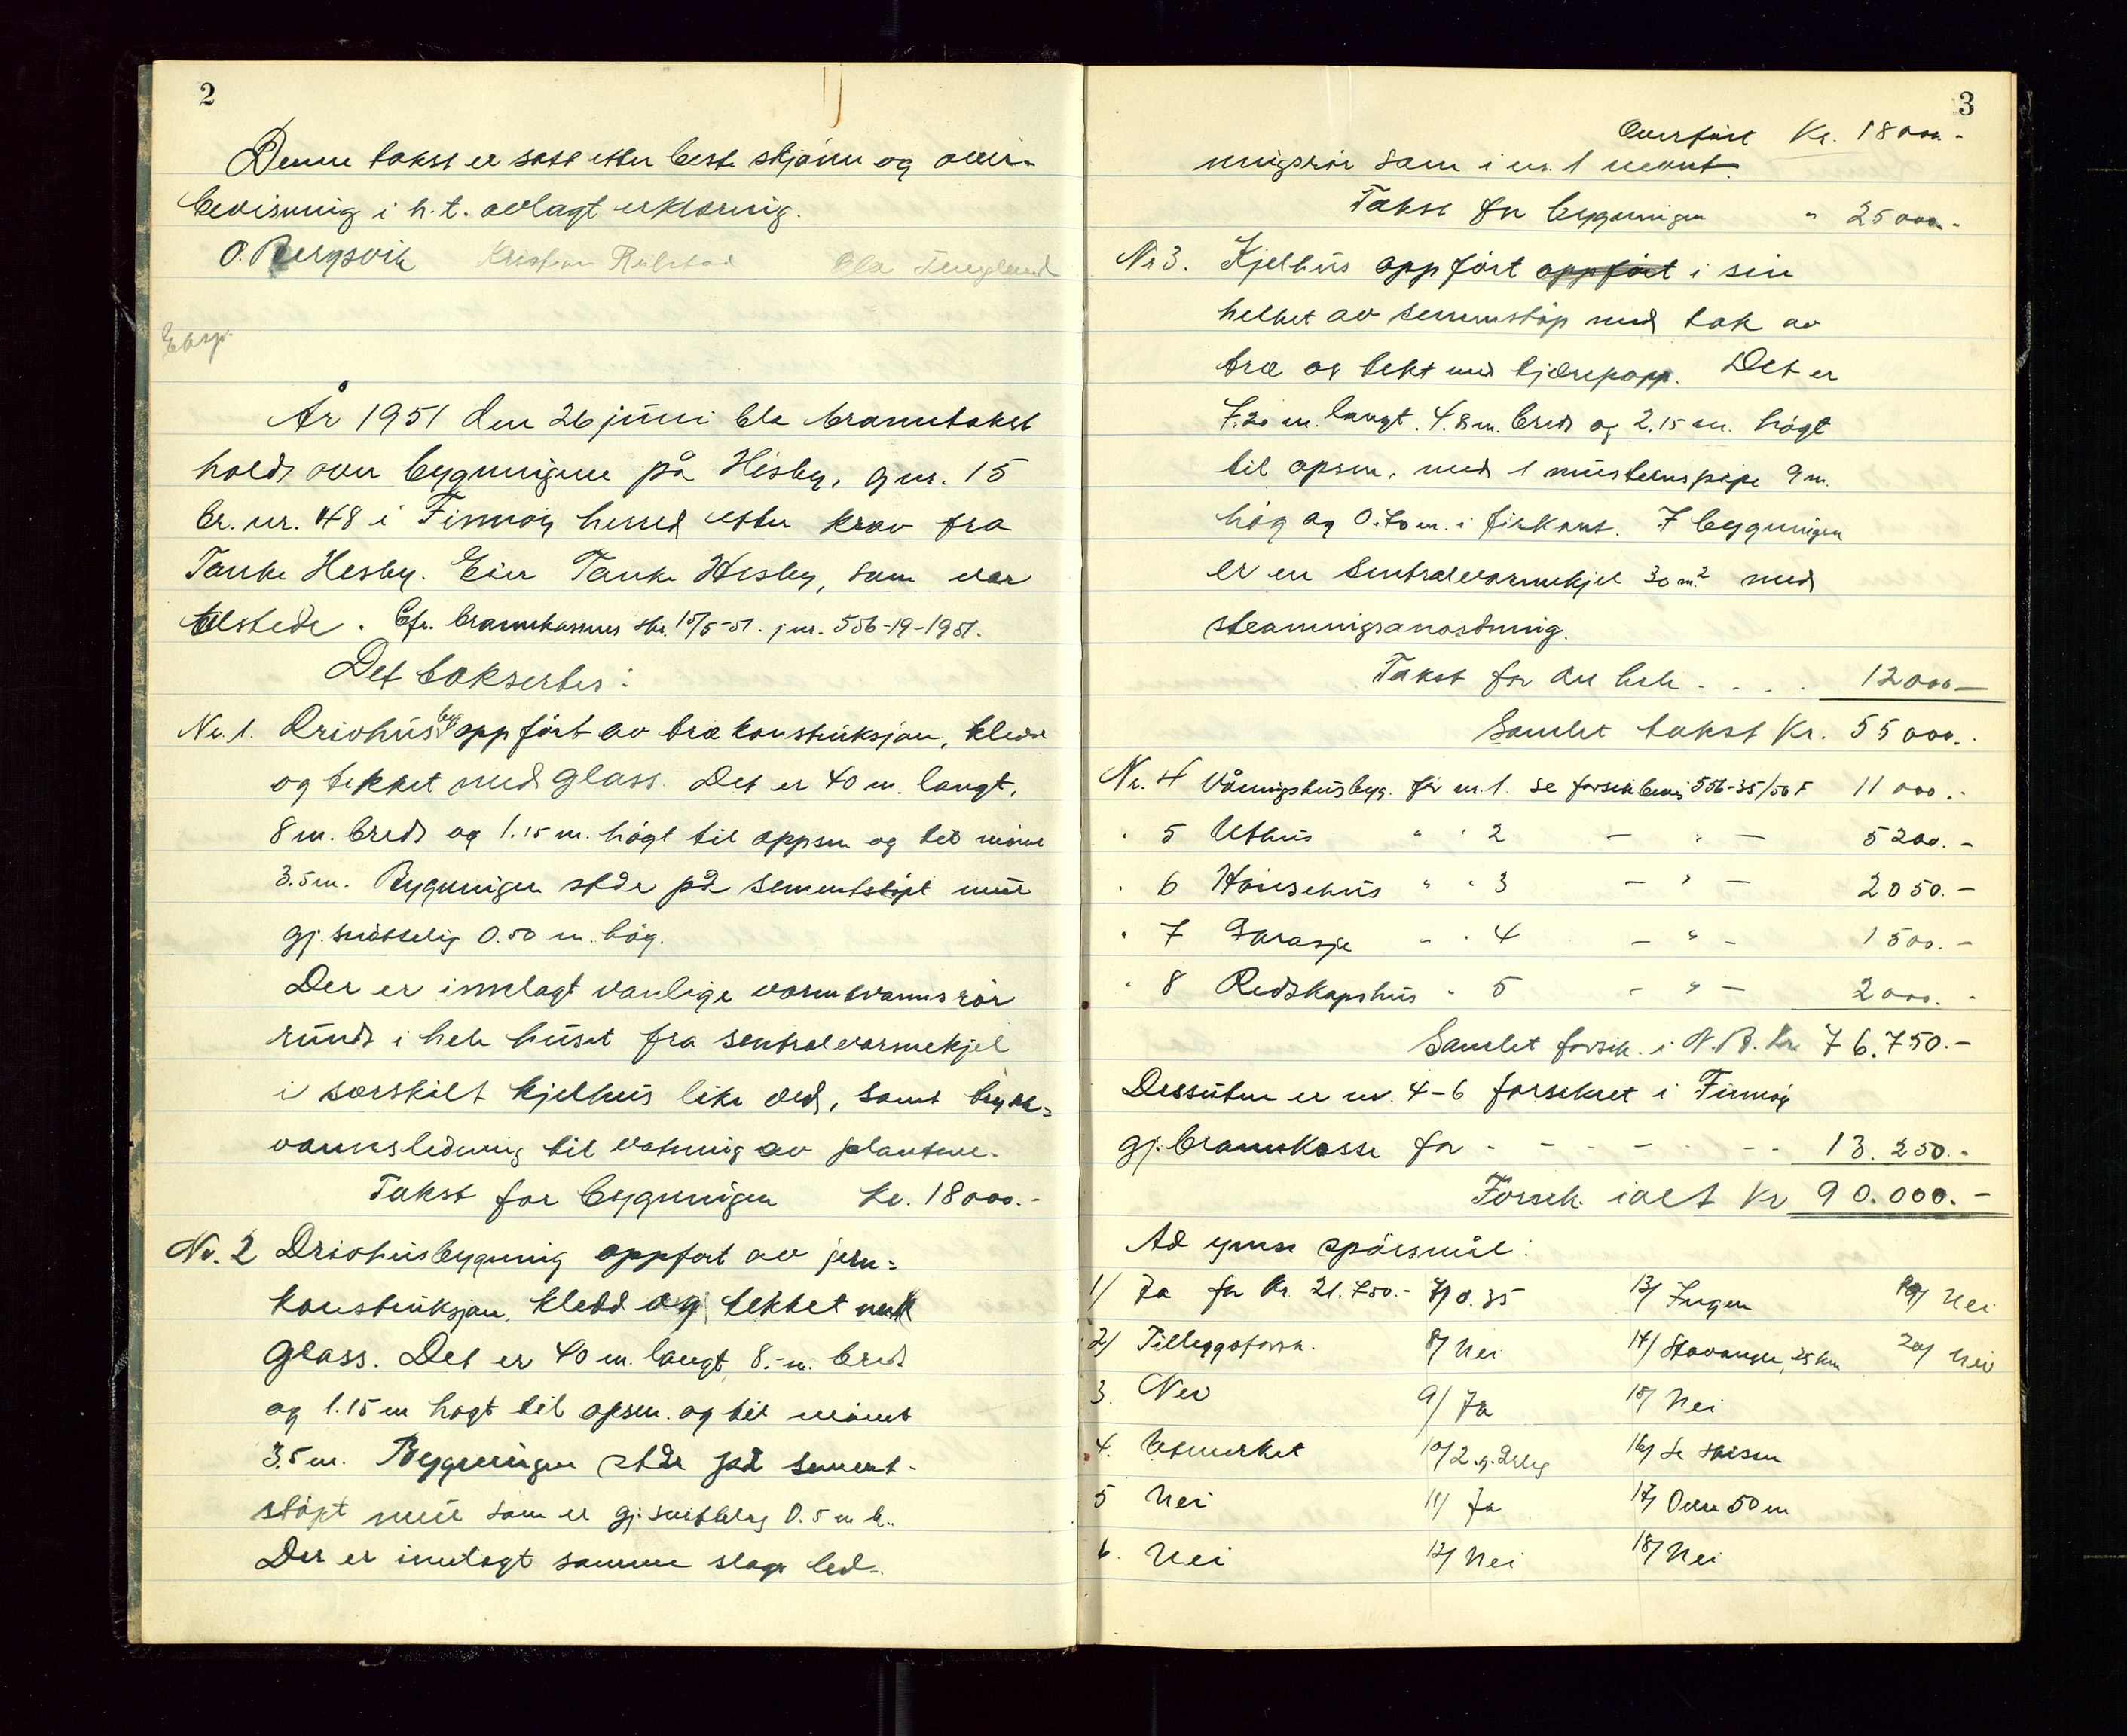 2
Denne takst er satt etter beste skjønn og over-
bevisning i h.t. avlagt erklæring.
O. Bergsvik Kristian Ola
Eksp.
År 1951 den 26 juni ble branntakst
holdt over bygningene på Hesby, gnr. 15
br.nr. 48 i Finnøy herred etter krav fra
Tanke Hesby. Eier Tanke Hesby, som var
tilstede. Cfr. brannkassens skr. 15/5-51. jnr. 556-19-1951.
Det taksertes:
Nr. 1. Drivhusbyg oppført av tre konstruksjon, kledd
og tekket med glass. Det er 40 m. langt,
8 m. bredt og 1.15 m. høgt til oppsen og til møne
3.5 m. Bygningen står på sementstøpt mur
gj.snittelig 0.50 m. høg.
Der er innlagt vanlige varmtvannsrør
rundt i hele huset fra sentralvarmekjel
i særskilt kjelhus like ved, samt trykk=
vannsledning til vatning av plantene.
Takst for bygningen kr. 18000.-
Nr. 2 Drivhusbygning oppført av jern=
konstruksjon, kledd og tekket med
glass. Det er 40 m. langt, 8.- m. bredt
og 1.15 m høgt til opsen. og til mønet
3.5 m. Bygningen står på sement-
støpt mur som er gj.snittlig 0.5 m h..
Der er innlagt samme slags led-
3
Overført Kr. 18000.-
ningsrør som i nr. 1 nevnt.
Takst for bygningen " 25000.-
Nr 3. Kjelhus oppført oppført i sin
helhet av sementstøp med tak av
tre og tekt med tjærepapp. Det er
7.20 m. langt. 4.8 m. bredt og 2.15 m. høgt
til opsen, med 1 murstenspipe 9 m.
høg og 0.70 m. i firkant. I bygningen
er en sentralvarmekjel 30 m² med
steamningsanordning.
Takst for det hele . . . . 12000-
Samlet takst Kr. 55000.-
Nr. 4 Våningshusbyg. før nr. 1. se forsikr.bevis 556-35/50 F 11 000.-
" 5 Uthus " " 2 - " - 5 200.-
" 6 Hønsehus " " 3 - " - 2 050.-
" 7 Garasje " " 4 - " - 1 500.-
" 8 Redskapshus " 5 - " - 2 000.-
Samlet forsik. i N.B. Kr 76.750.-
Dessuten er nr. 4-6 forsikret i Finnøy
gj. brannkasse for - - - - - - - 13.250.-
Forsik. ialt Kr 90.000.-
Ad ymse spørsmål:
1/ Ja for kr. 21.750.- 7/ 0.35 13/ Ingen 19/ Nei
2/ Tilleggsforsk. 8/ Nei 14/ Stavanger, 25 km 20/ Nei
3. Nei 9/ Ja 15/ Nei
4. Utmerket 10/ 2.g. årlig 16/ Se skissen
5 Nei 11/ Ja 17/ Over 50 m
6. Nei 12/ Nei 18/ Nei